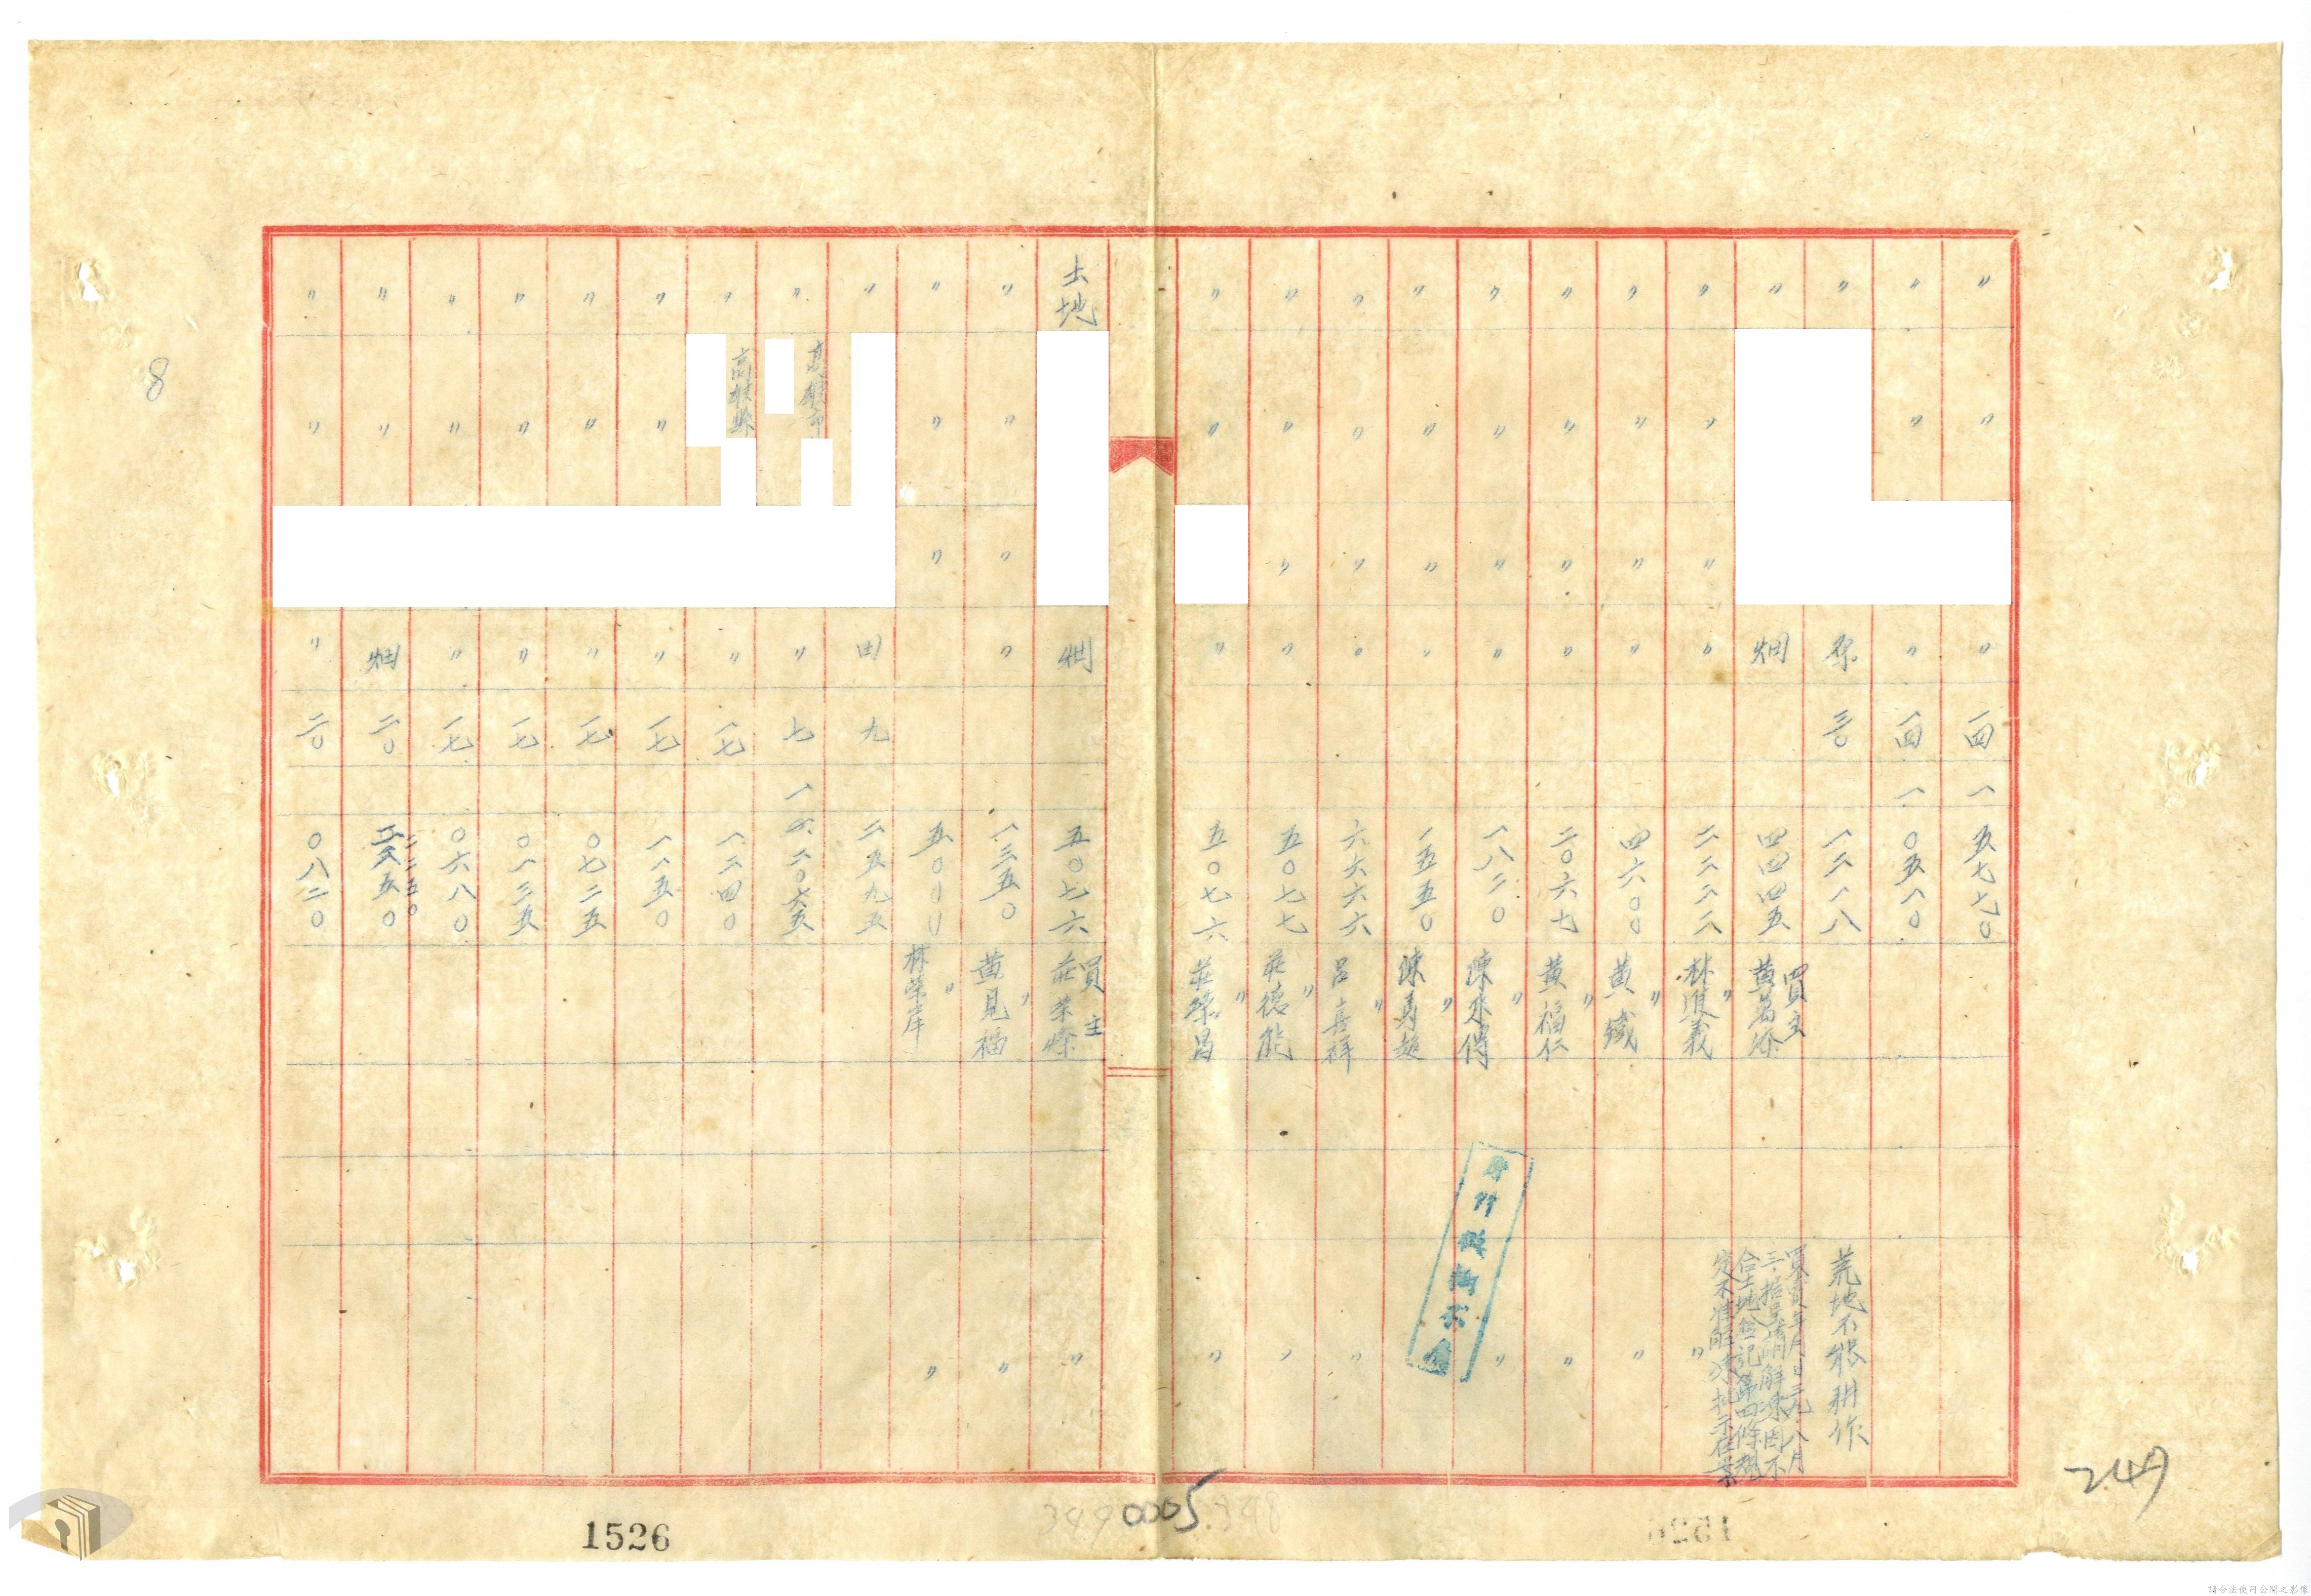 〃 〃 〃 一四 一 五七七〇
〃 〃 〃 一四 一 〇五一〇
〃 原 三〇 一二一八 荒地不能耕作
〃 畑 四四四五 買主 黃萬添 買賣年月日三九、八月
三、指呈請解凍因不
合土地登記第四條規
定不准解凍批示在案
〃 〃 〃 〃 二二二二 〃 林順義 〃
〃 〃 〃 〃 四六〇〇 〃 黃鐵 〃
〃 〃 〃 〃 二〇六七 〃 黃福仁 〃
〃 〃 〃 〃 一八二〇 〃 陳來傳 〃
〃 〃 〃 〃 一五五〇 〃 陳馬超
〃 〃 〃 〃 六六六六 〃 呂喜祥 〃
〃 〃 〃 〃 五〇七七 〃 莊德能 〃
〃 〃 〃 五〇七六 〃 莊榮昌 〃
土地 畑 五〇七六 買主 莊榮燦 〃
〃 〃 〃 〃 一三五〇 〃 黃見福 〃
〃 〃 〃 五〇〇〇 〃 林榮岸 〃
〃 田 九 二五九五
〃 高雄市 〃 七 一
〃 高雄縣 〃 一七 一二四〇
〃 〃 〃 一七 一一五〇
〃 〃 〃 一七 〇七二五
〃 〃 〃 一七 〇一三五
〃 〃 〃 一七 〇六八〇
〃 〃 畑 二〇 二二五〇
〃 〃 〃 二〇 〇八二〇
8
249
0005
1526
請合法使用公開之影像